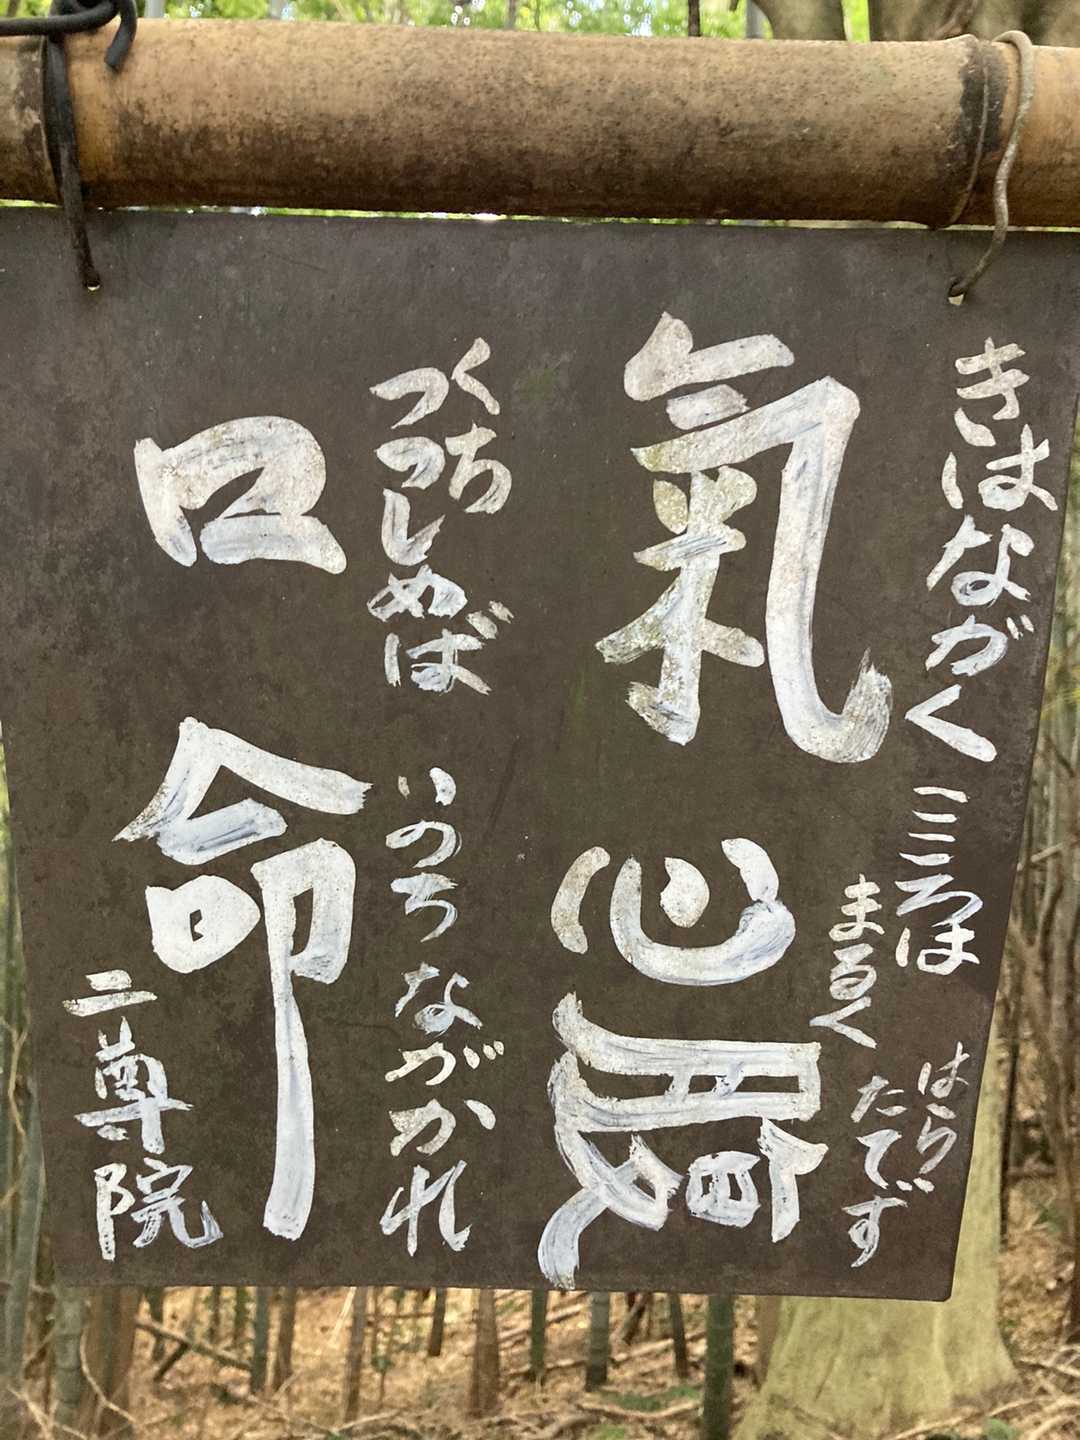 きはながく
こころは
まるく
はら
たてず
氣心腹
くち
つつしめば
いのちながかれ
口命
二尊院